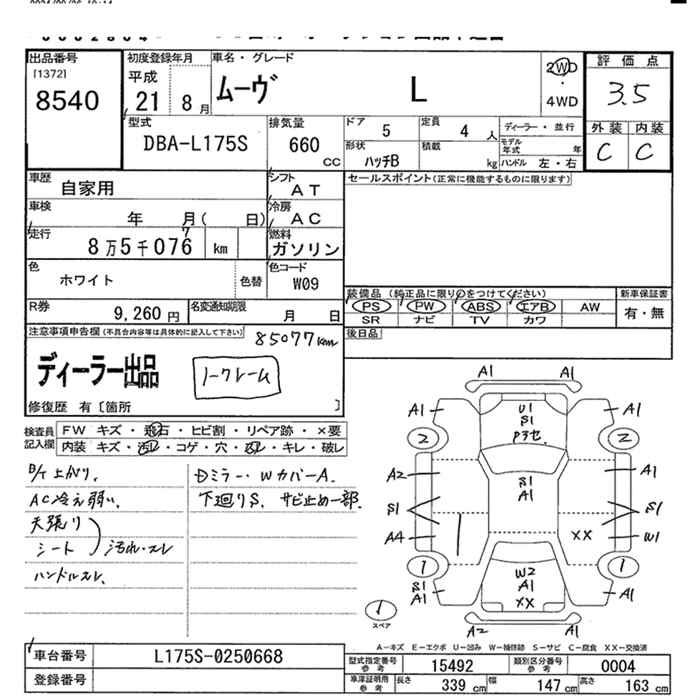 出品番号
[1372]
8540
初度登録年月
平成
21 8月
車名・グレード
ムーヴ L
2WD
・
4WD
評価点
3.5
外装 内装
C C
型式
DBA-L175S
排気量
660
CC
ドア
5
定員
4 人
ディーラー・並行
形状
ハッチB
積載
kg
モデル年式
年
ハンドル 左・右
車歴
自家用
シフト
AT
セールスポイント(正常に機能するものに限ります)
車検
年 月( 日)
冷房
AC
走行
8万5千076 km
7
燃料
ガソリン
色
ホワイト
色替
色コード
W09
装備品(純正品に限り○をつけてください)
PS PW ABS エアB AW
SR ナビ TV カワ
新車保証書
有・無
R券
9,260円
名変通知期限
月 日
後日品
注意事項申告欄(不具合内容等は具体的に記入して下さい)
85077km
ディーラー出品
ノークレーム
修復歴 有〔箇所 〕
検査員記入欄
FW キズ・飛石・ヒビ割・リペア跡・×要
内装 キズ・汚レ・コゲ・穴・スレ・キレ・破レ
B/T上がり.
AC冷え弱い.
天張り
シート
汚れ・スレ
ハンドルスレ.
Dミラー・WカバーA.
下廻りS. サビ止め一部.
A1 A1
A1 U1 A1
S1
Pヲセ
2 2
A2 S1 A1
A1
S1 S1
A4 XX W1
1 1
S1 W2 A1
A1 A1
XX
1
スペア
A2 A1
A-キズ E-エクボ U-凹み W-補修跡 S-サビ C-腐食 XX-交換済
車台番号
L175S-0250668
登録番号
型式指定番号
参考
15492
類別区分番号
参考
0004
車庫証明用
参考
長さ 339 cm
幅 147 cm
高さ 163 cm